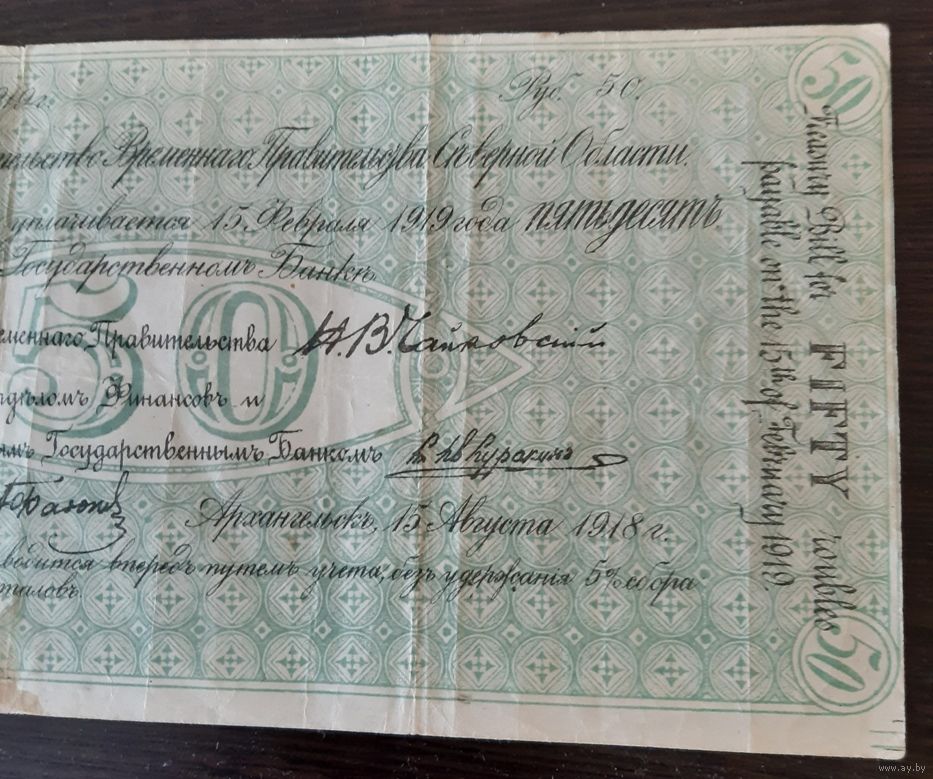 Руб. 50.
Временнаго Правительства Сѣверной Области.
уплачивается 15 Февраля 1919 года пятьдесятъ
Государственномъ Банкѣ
50
Правительства Н.В. Чайковскій
Финансовъ и
Государственнымъ Банкомъ
Архангельскъ, 15 Августа 1918 г.
впередъ путемъ учета, безъ удержанія 5% сбора
50
Treasury Bill for FIFTY roubles
payable on the 15th of February 1919.
50
www.ay.by